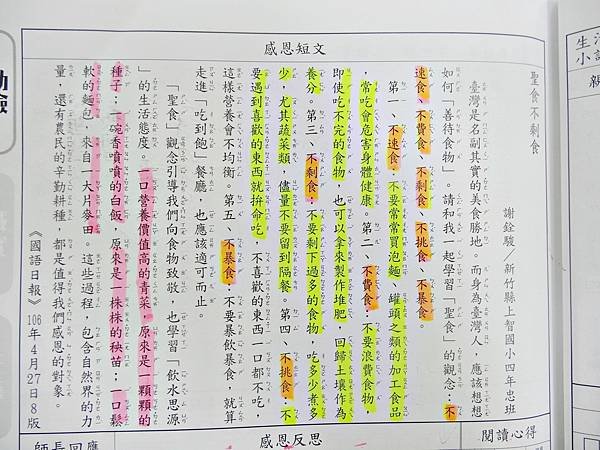 感恩短文
聖食不剩食
謝銓駿／新竹縣上智國小四年忠班
臺灣是名副其實的美食勝地。而身為臺灣人，應該想想
如何「善待食物」。請和我一起學習「聖食」的觀念：不
速食、不費食、不剩食、不挑食、不暴食。
第一、不速食：不要常常買泡麵、罐頭之類的加工食品
，常吃會危害身體健康。第二、不費食：不要浪費食物，
即使吃不完的食物，也可以拿來製作堆肥，回歸土壤作為
養分。第三、不剩食：不要剩下過多的食物，吃多少煮多
少，尤其蔬菜類，儘量不要留到隔餐。第四、不挑食：不
要遇到喜歡的東西就拚命吃，不喜歡的東西一口都不吃，
這樣營養會不均衡。第五、不暴食：不要暴飲暴食，就算
走進「吃到飽」餐廳，也應該適可而止。
「聖食」觀念引導我們向食物致敬，也學習「飲水思源
」的生活態度。一口營養價值高的青菜，原來是一顆顆的
種子；一碗香噴噴的白飯，原來是一株株的秧苗；一口鬆
軟的麵包，來自一大片麥田。這些過程，包含自然界的力
量，還有農民的辛勤耕種，都是值得我們感恩的對象。
《國語日報》106年4月27日8版
感恩反思
閱讀心得
師長回應
生活
小語
親